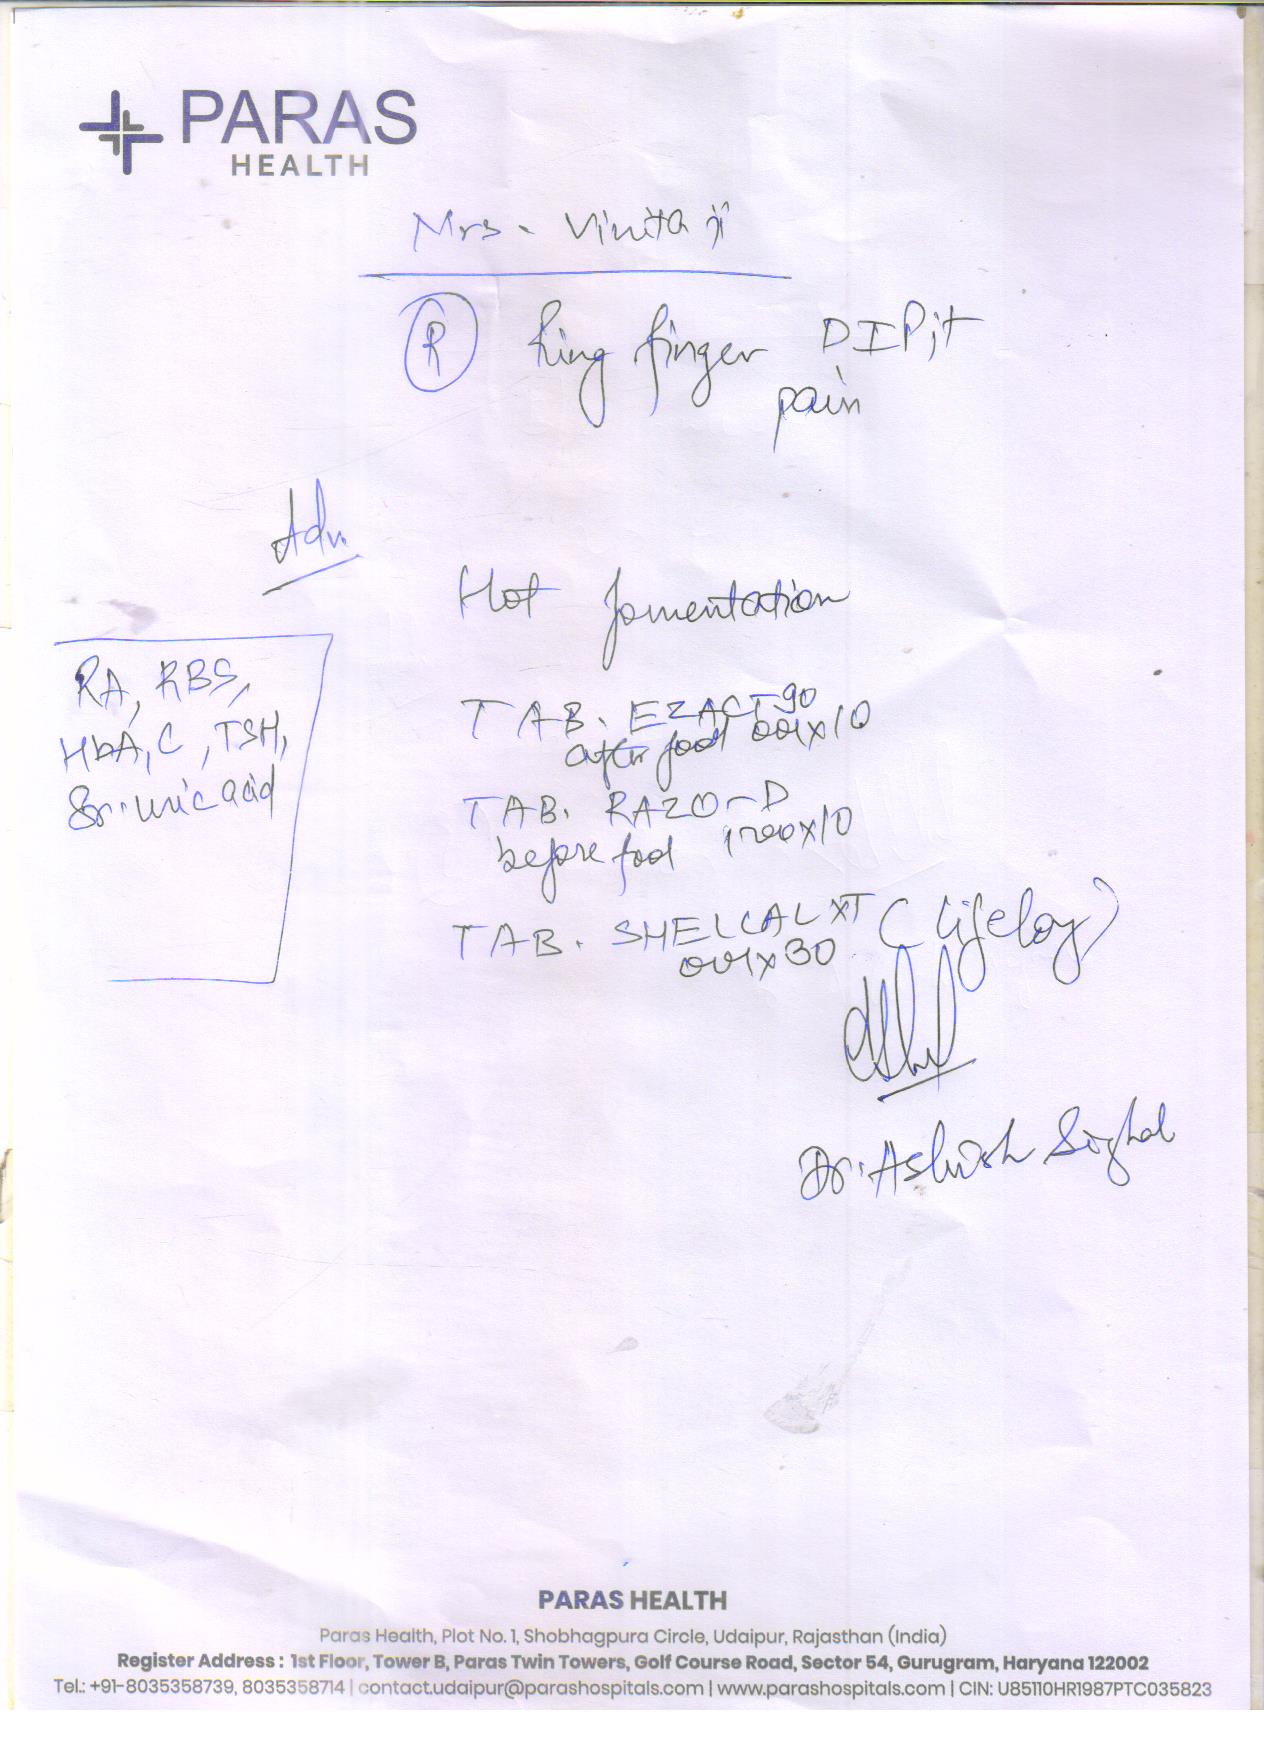 PARAS
HEALTH
Mrs. Vinita ji
R Ring finger DIP jt
pain
Adv.
Hot fomentation
RA, RBS,
HbA1C, TSH,
Sr. uric acid
TAB. EZACT 90
after food 001x10
TAB. RAZO-D
before food 100x10
TAB. SHELCAL XT (Lifeloy)
001x30
Dr. Ashish Singhal
PARAS HEALTH
Paras Health, Plot No. 1, Shobhagpura Circle, Udaipur, Rajasthan (India)
Register Address : 1st Floor, Tower B, Paras Twin Towers, Golf Course Road, Sector 54, Gurugram, Haryana 122002
Tel.: +91-8035358739, 8035358714 | contact.udaipur@parashospitals.com | www.parashospitals.com | CIN: U85110HR1987PTC035823